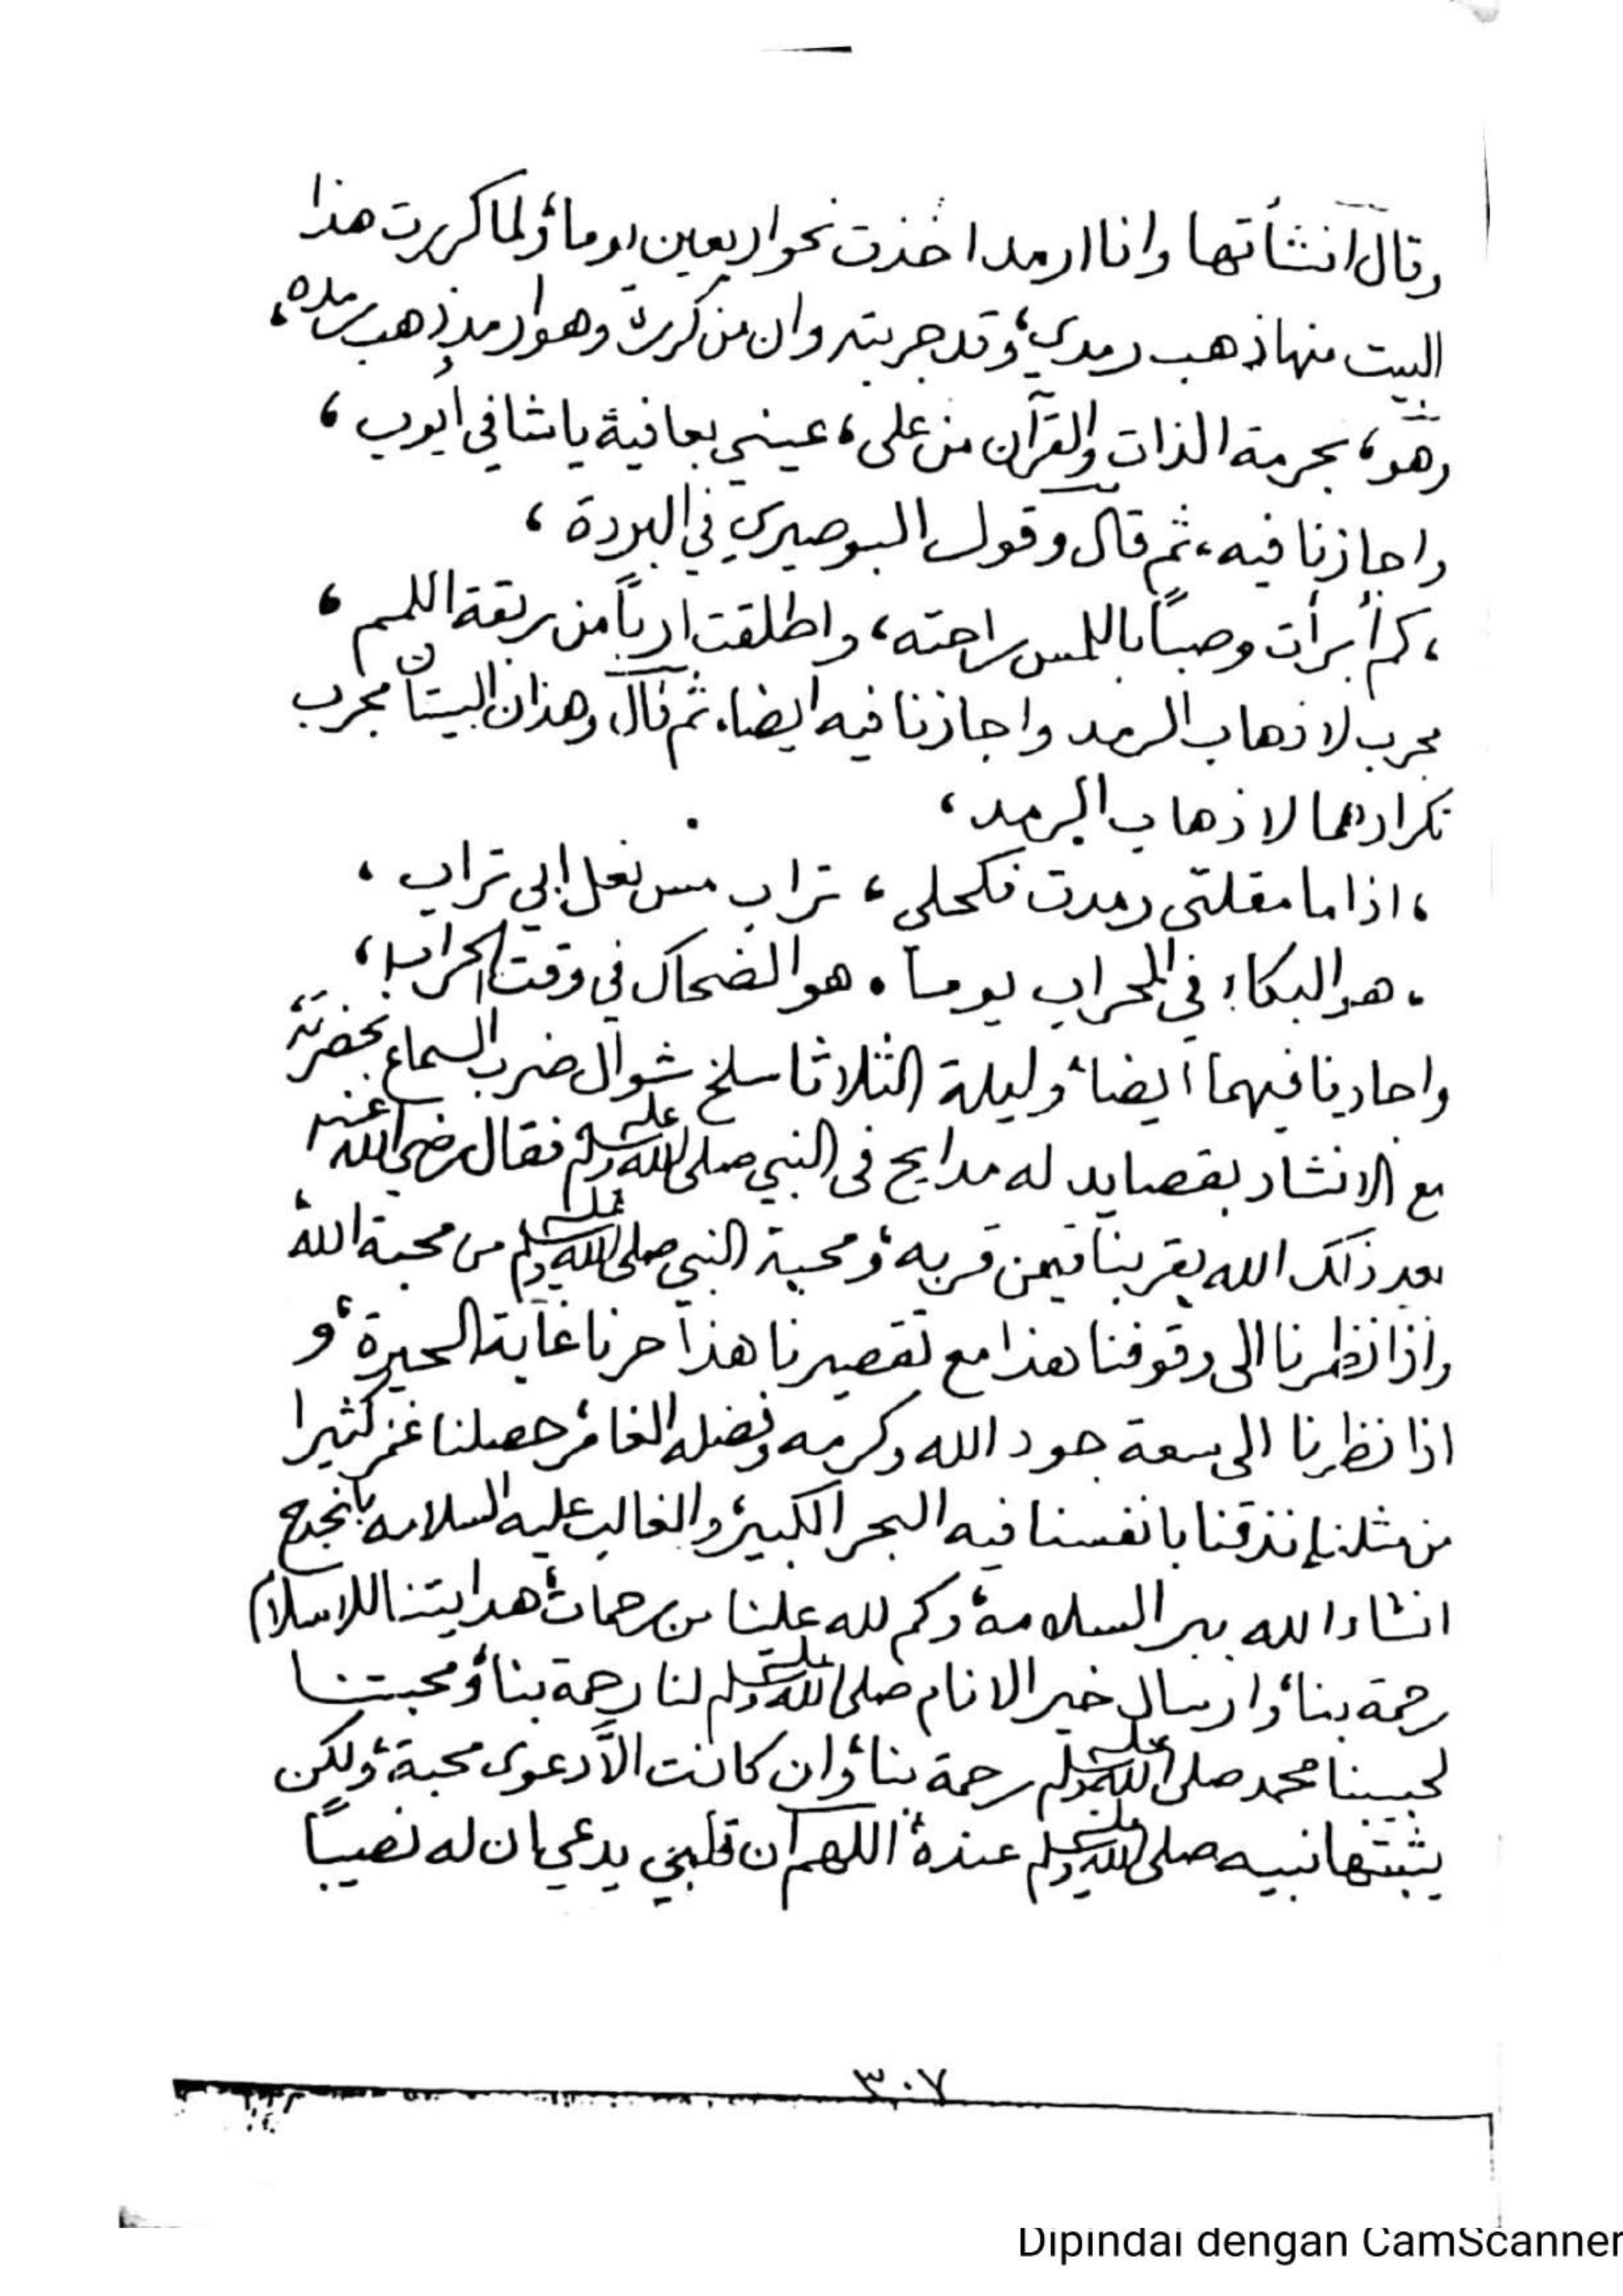 وقال انشأتها وانا ارمد اخذت نحو اربعين يوما، ولما كررت هذا
البيت منها ذهب رمدي، وقد جربته وان من كرره وهو ارمد ذهب رمده،
وهو، بحرمة الذات والقرآن من على، عيني بعافية يا شافي أيوب،
واجازنا فيه، ثم قال وقول البوصيري في البردة،
، كم أبرأت وصباً باللمس راحته، واطلقت ارباً من ربقة اللمم،
مجرب لاذهاب الرمد واجازنا فيه ايضا، ثم قال وهذان البيتان مجرب
تكرارهما لاذهاب الرمد،
، اذا ما مقلتي رمدت فكحلي، تراب مس نعل ابي تراب،
، هو البكاء في المحراب يوما . هو الضحاك في وقت الحراب،
واجازنا فيهما ايضا، وليلة الثلاثا سلخ شوال ضرب السماع بحضرته
مع الانشاد بقصايد له مدايح في النبي صلى الله عليه وسلم فقال رضي الله عنه
بعد ذلك الله يقربنا فيمن قربه، ومحبة النبي صلى الله عليه وسلم من محبة الله
واذا نظرنا الى وقوفنا هذا مع تقصيرنا هذا حرنا غاية الحيرة، و
اذا نظرنا الى سعة جود الله وكرمه وفضله الغامر حصلنا كثيرا
من مثلنا بانفسنا فيه البحر الكبير، والغالب عليه السلامه
انشاء الله ببر السلامة، وكم لله علينا من رحمات، هدايتنا للاسلام
رحمة بنا، وارسال خير الانام صلى الله عليه وسلم لنا رحمة بنا، ومحبتنا
لحبيبنا محمد صلى الله عليه وسلم رحمة بنا، وان كانت الاّ دعوى محبة، ولكن
يثبتها نبيه صلى الله عليه وسلم عنده، اللهم ان قلبي يدعي ان له نصيباً
٣٠٧
Dipindai dengan CamScanner